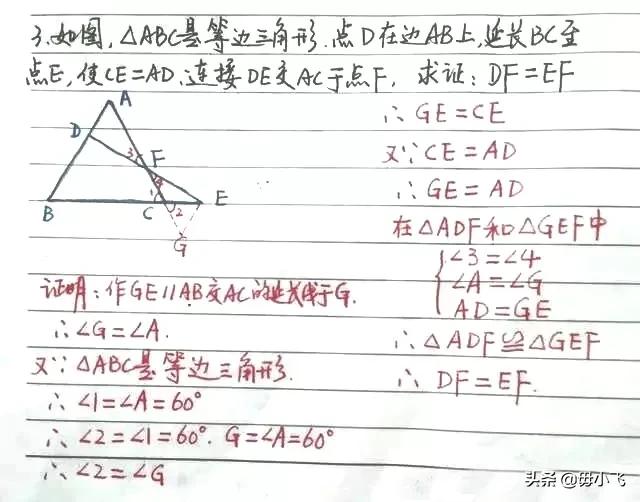 3.如图,△ABC是等边三角形.点D在边AB上,延长BC至
点E,使CE=AD.连接DE交AC于点F, 求证:DF=EF
A
D
3
F
4
B
C
1
2
E
G
证明:作GE∥AB交AC的延长线于G.
∴∠G=∠A.
又∵△ABC是等边三角形.
∴∠1=∠A=60°
∴∠2=∠1=60°. G=∠A=60°
∴∠2=∠G
∴GE=CE
又∵CE=AD
∴GE=AD
在△ADF和△GEF中
∠3=∠4
∠A=∠G
AD=GE
∴△ADF≌△GEF
∴DF=EF.
头条@毋小飞